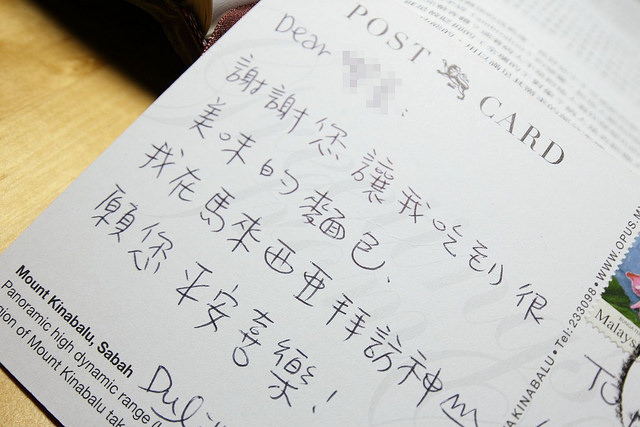 POST CARD
Dear :
謝謝您讓我吃到很
美味的麵包.
我在馬來西亞拜訪神山
願您平安喜樂!
Mount Kinabalu, Sabah
Panoramic high dynamic range
of Mount Kinabalu
AKINABALU • Tel: 233098 • WWW.OPUS.
Malays
To